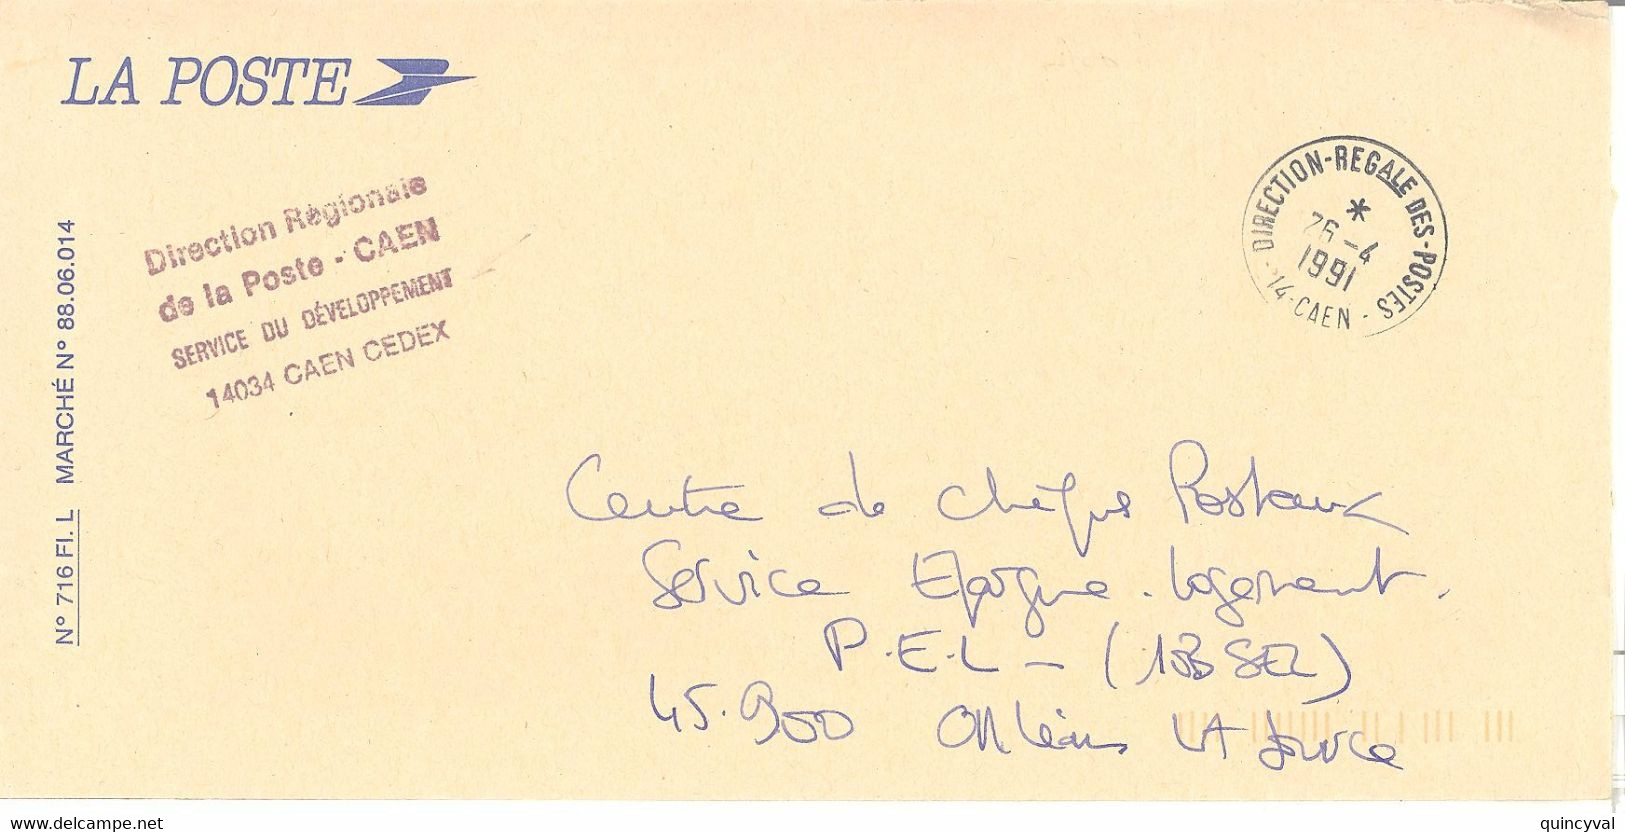 LA POSTE
Direction Régionale
de la Poste - CAEN
SERVICE DU DÉVELOPPEMENT
14034 CAEN CEDEX
N° 716 FI. L MARCHÉ N° 88.06.014
DIRECTION-REGALE DES-POSTES
*
26-4
1991
14-CAEN-
Centre de chèque Postaux
Service Epargne. Logement.
P.E.L - (1BB SEL)
45.900 Orléans LA Source
www.delcampe.net
quincyval